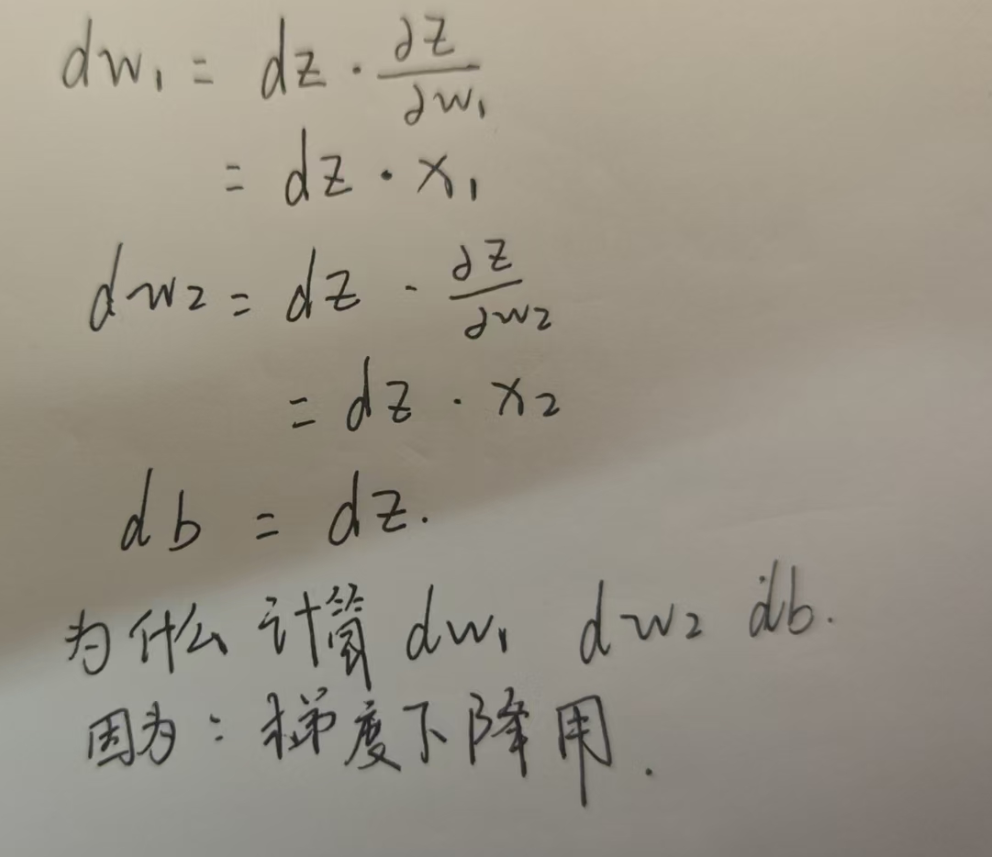 dw₁ = dz · ∂z/∂w₁
= dz · x₁
dw₂ = dz · ∂z/∂w₂
= dz · x₂
db = dz.
为什么计算 dw₁ dw₂ db.
因为：梯度下降用.